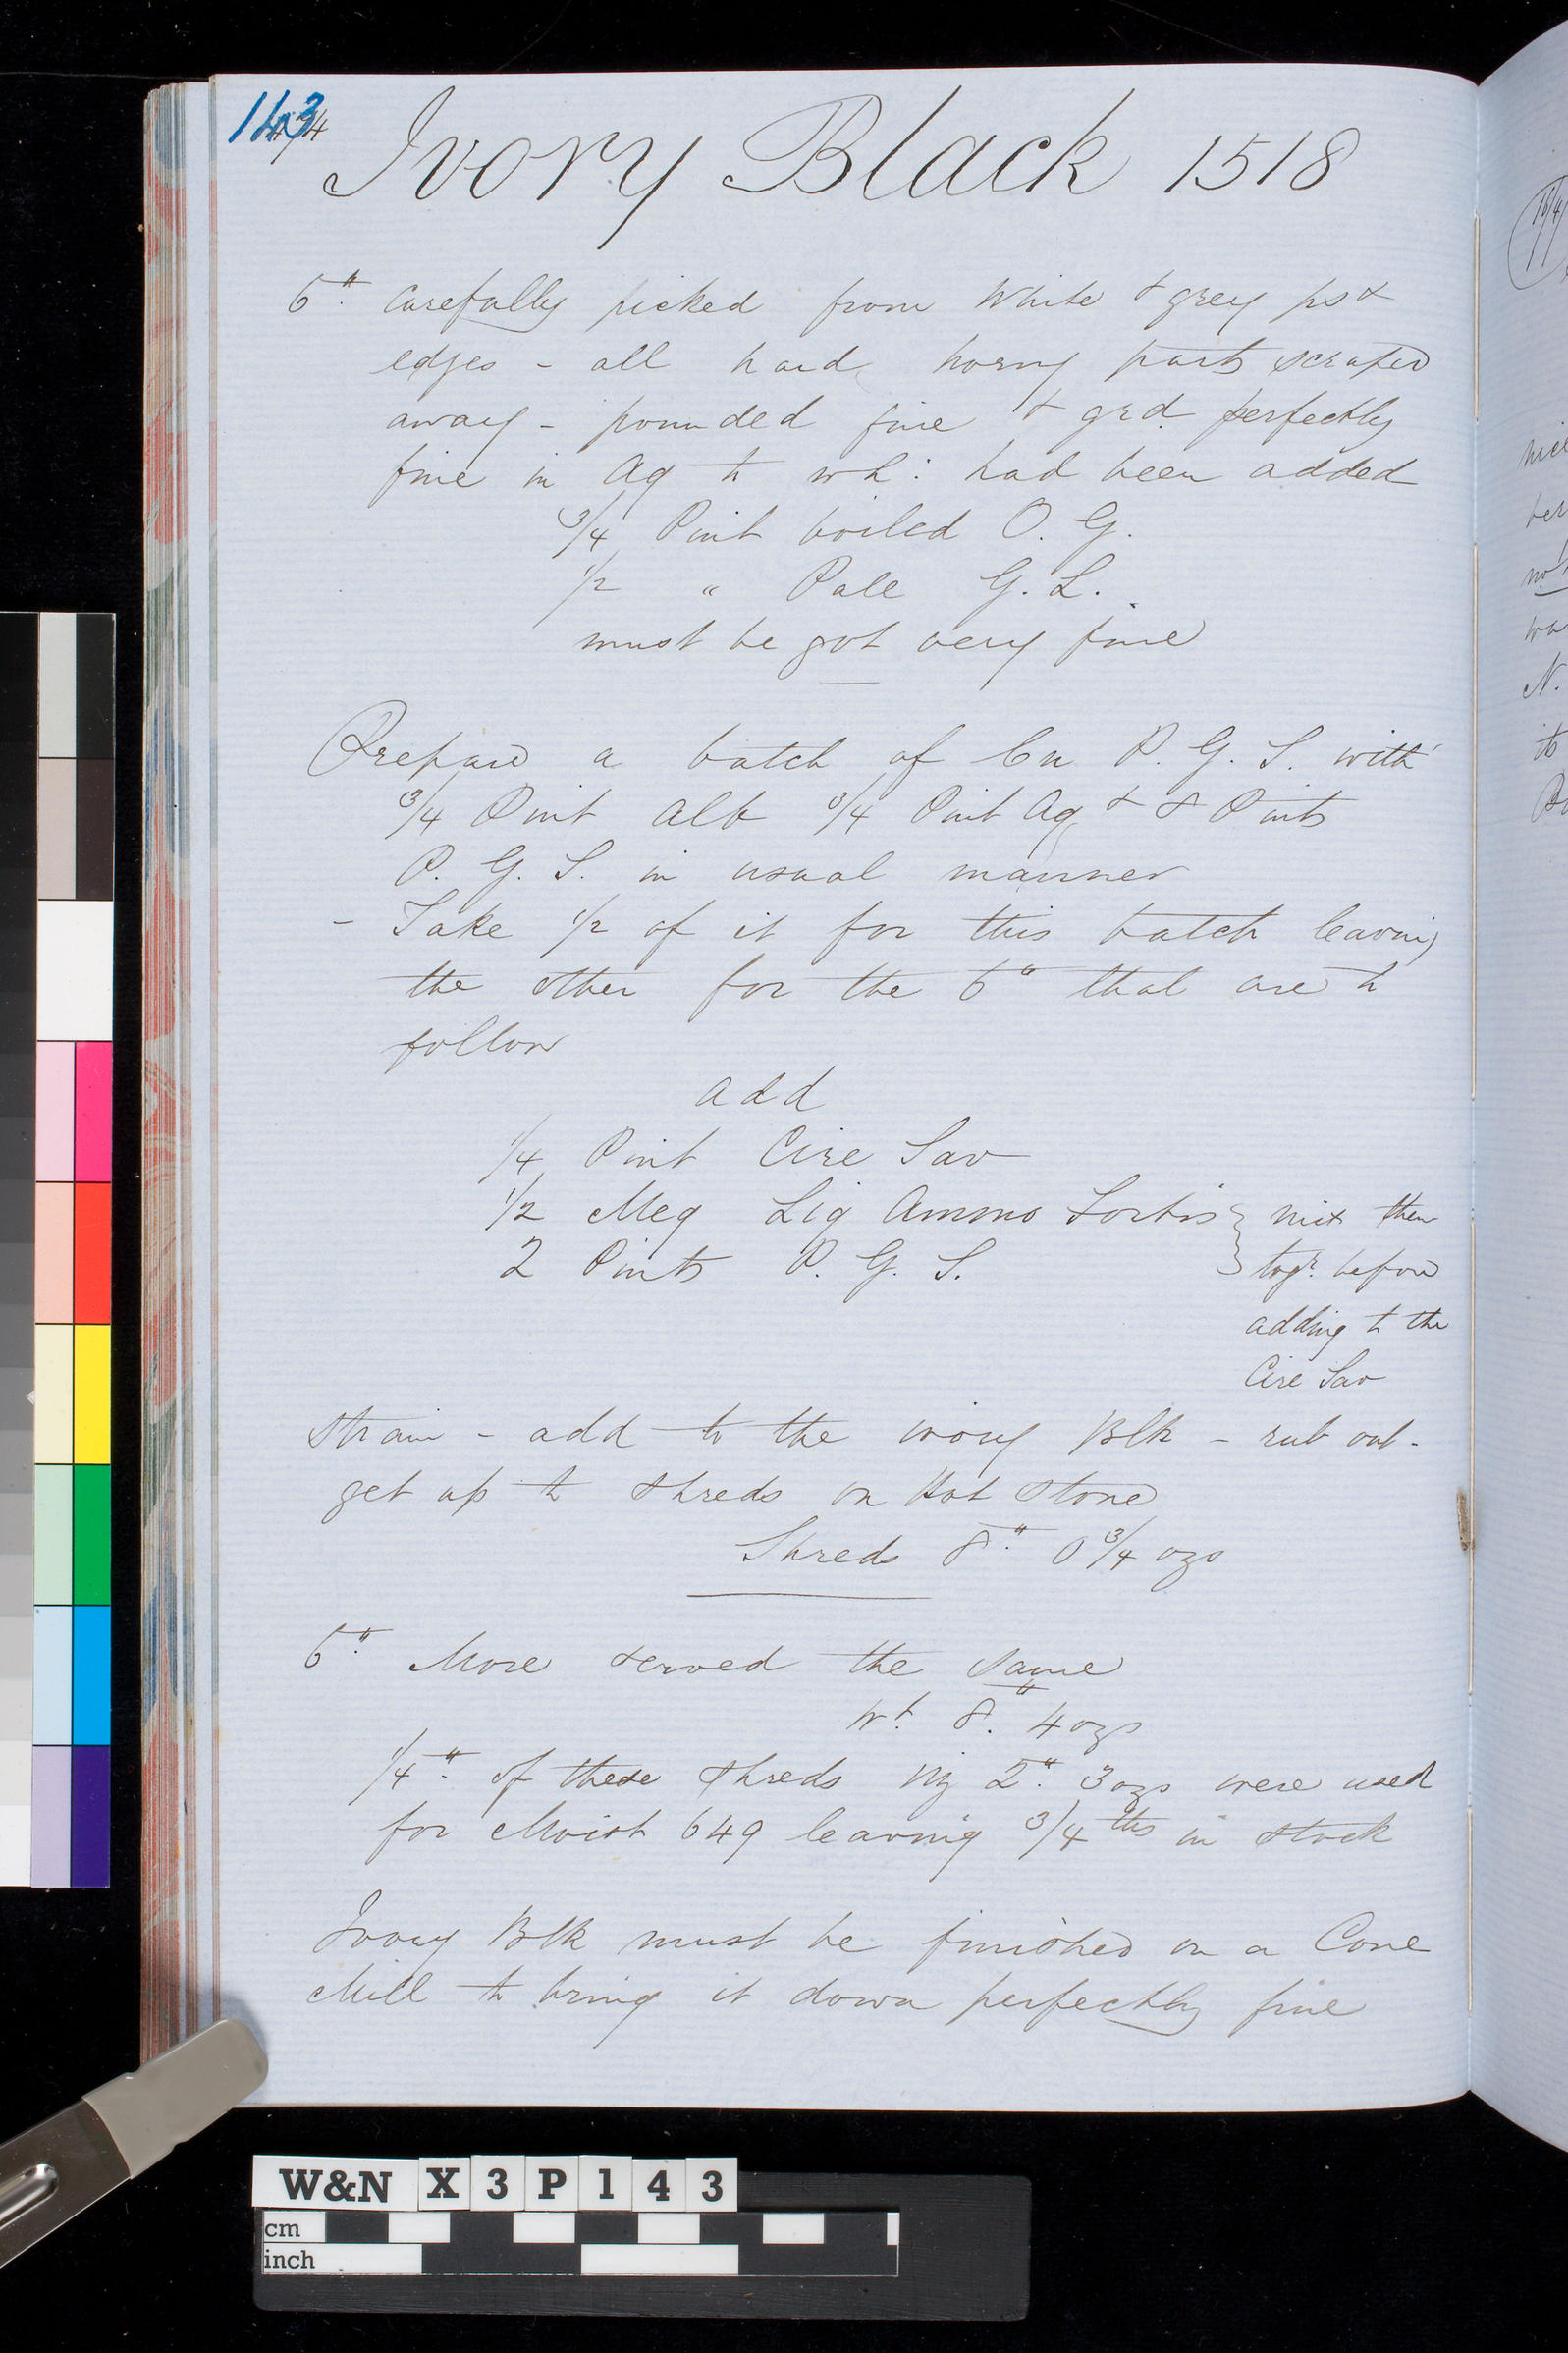 143
Ivory Black 1518
6". Carefully picked from White & grey ps &
edges - all hard horny parts scraped
away - pounded fine & grd. perfectly
fine in Aq to wh: had been added
3/4 Pint boiled O. G.
1/2 " Pale G. L.
must be got very fine
Prepare a batch of Cu P. G. S. with
3/4 Pint Alb 3/4 Pint Aq & 8 Pints
P. G. S. in usual manner
- Take 1/2 of it for this batch leaving
the other for the 6" that are to
follow
add
1/4 Pint Cire Sav
1/2 Meq Liq Ammo Fortis } mix them
2 Pints P. G. S. } togr. before
adding to the
Cire Sav
Strain - add to the ivory Blk - rub out -
get up to shreds on Hot Stone
Shreds 8". 0 3/4 ozs
6". More served the same
Wt. 8". 4 ozs
1/4". of these shreds viz 2". 3 ozs were used
for Moist 649 leaving 3/4ths in stock
Ivory Blk must be finished on a Cone
Mill to bring it down perfectly fine
W&N X3P143
cm
inch